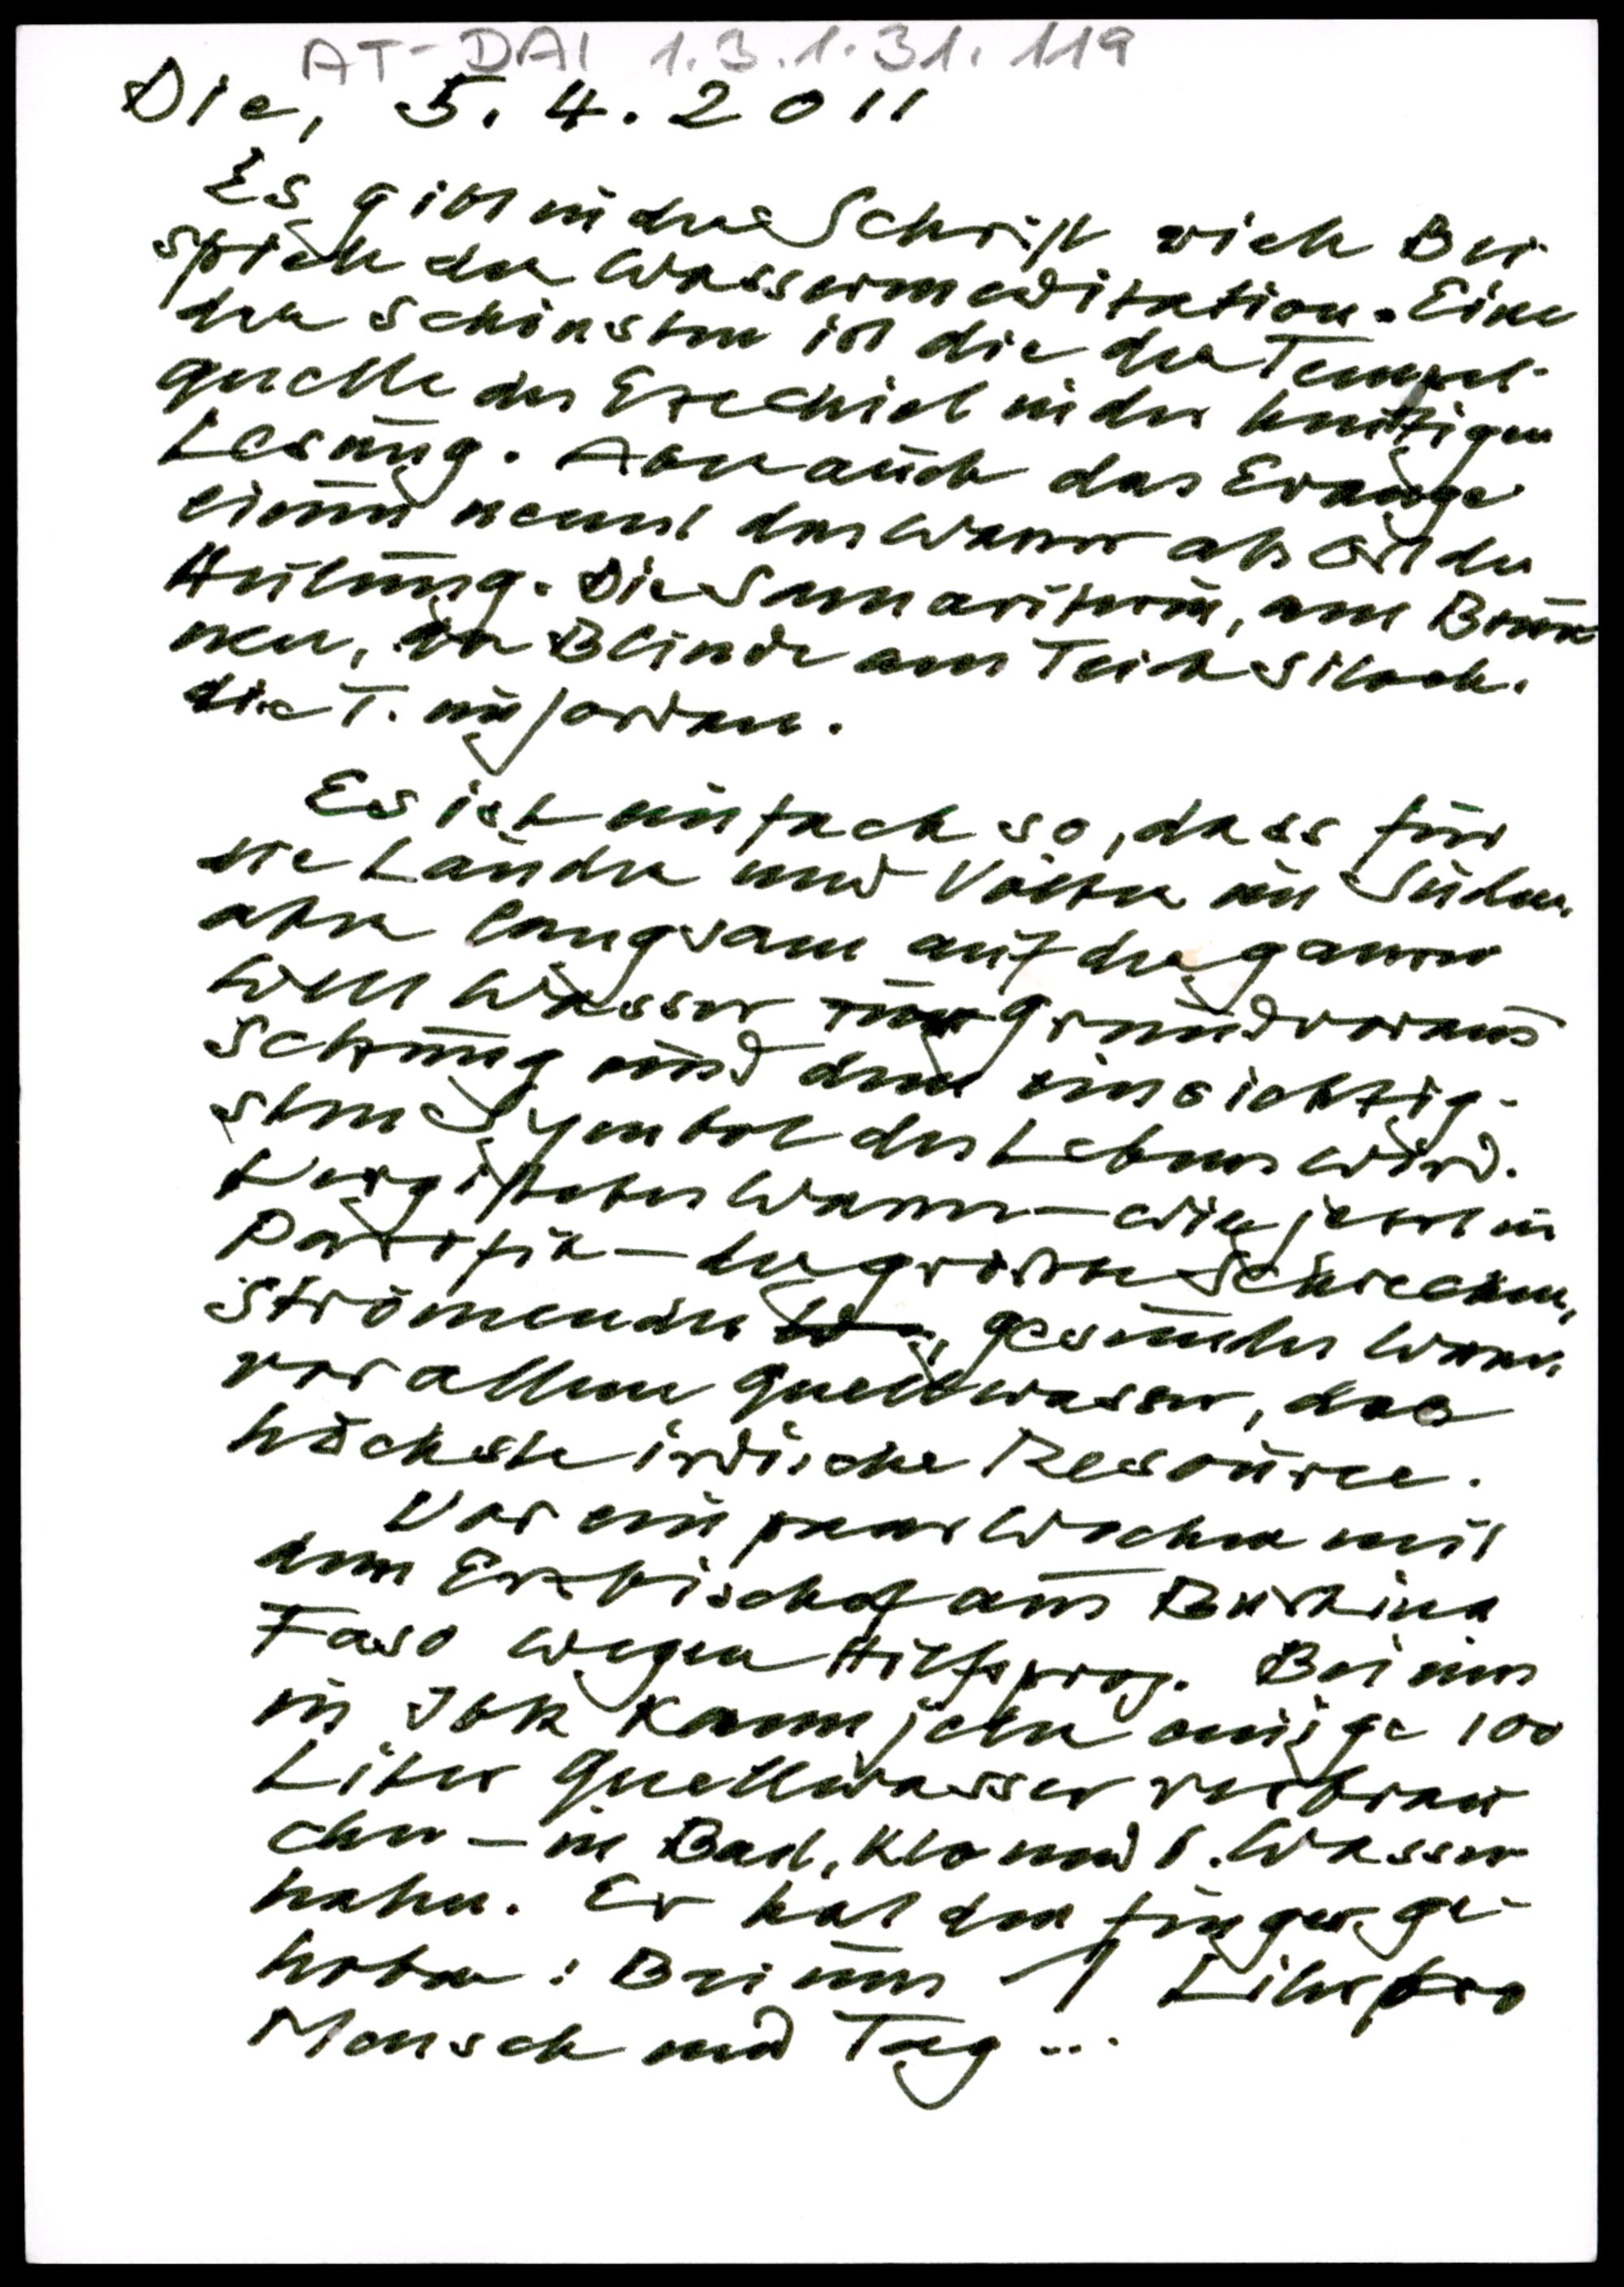 AT-DAI 1.3.1.31.119
Die, 5.4.2011
Es gibt in der Schrift viele Bei-
spiele der Wassermeditation. Eine
der schönsten ist die der Tempel-
quelle des Ezechiel in der heutigen
Lesung. Aber auch das Evange
lium nennt das Wasser als Ort der
Heilung. Die Samariterin, am Brun
nen, der Blinde am Teich Siloah.
die T. im Jordan.
Es ist einfach so, dass für
die Länder und Völker im Süden,
aber langsam auf der ganzen
Welt Wasser zur Grundvoraus
setzung und dem einsichtig-
sten Symbol des Lebens wird.
Vergiftetes Wasser – wie jetzt im
Pazifik – der grösste Schrecken,
Strömendes, gesundes Wasser,
vor allem Quellwasser, das
höchste irdische Resource.
Vor ein paar Wochen mit
dem Erzbischof aus Burkina
Faso wegen Hilfsprog. Bei uns
in Ibk kann jeder einige 100
Liter Quellwasser verbrau
chen – in Bad, Klo und Wasser
hahn. Er hat den Finger ge-
hoben: Bei uns 1 Liter pro
Mensch und Tag ...